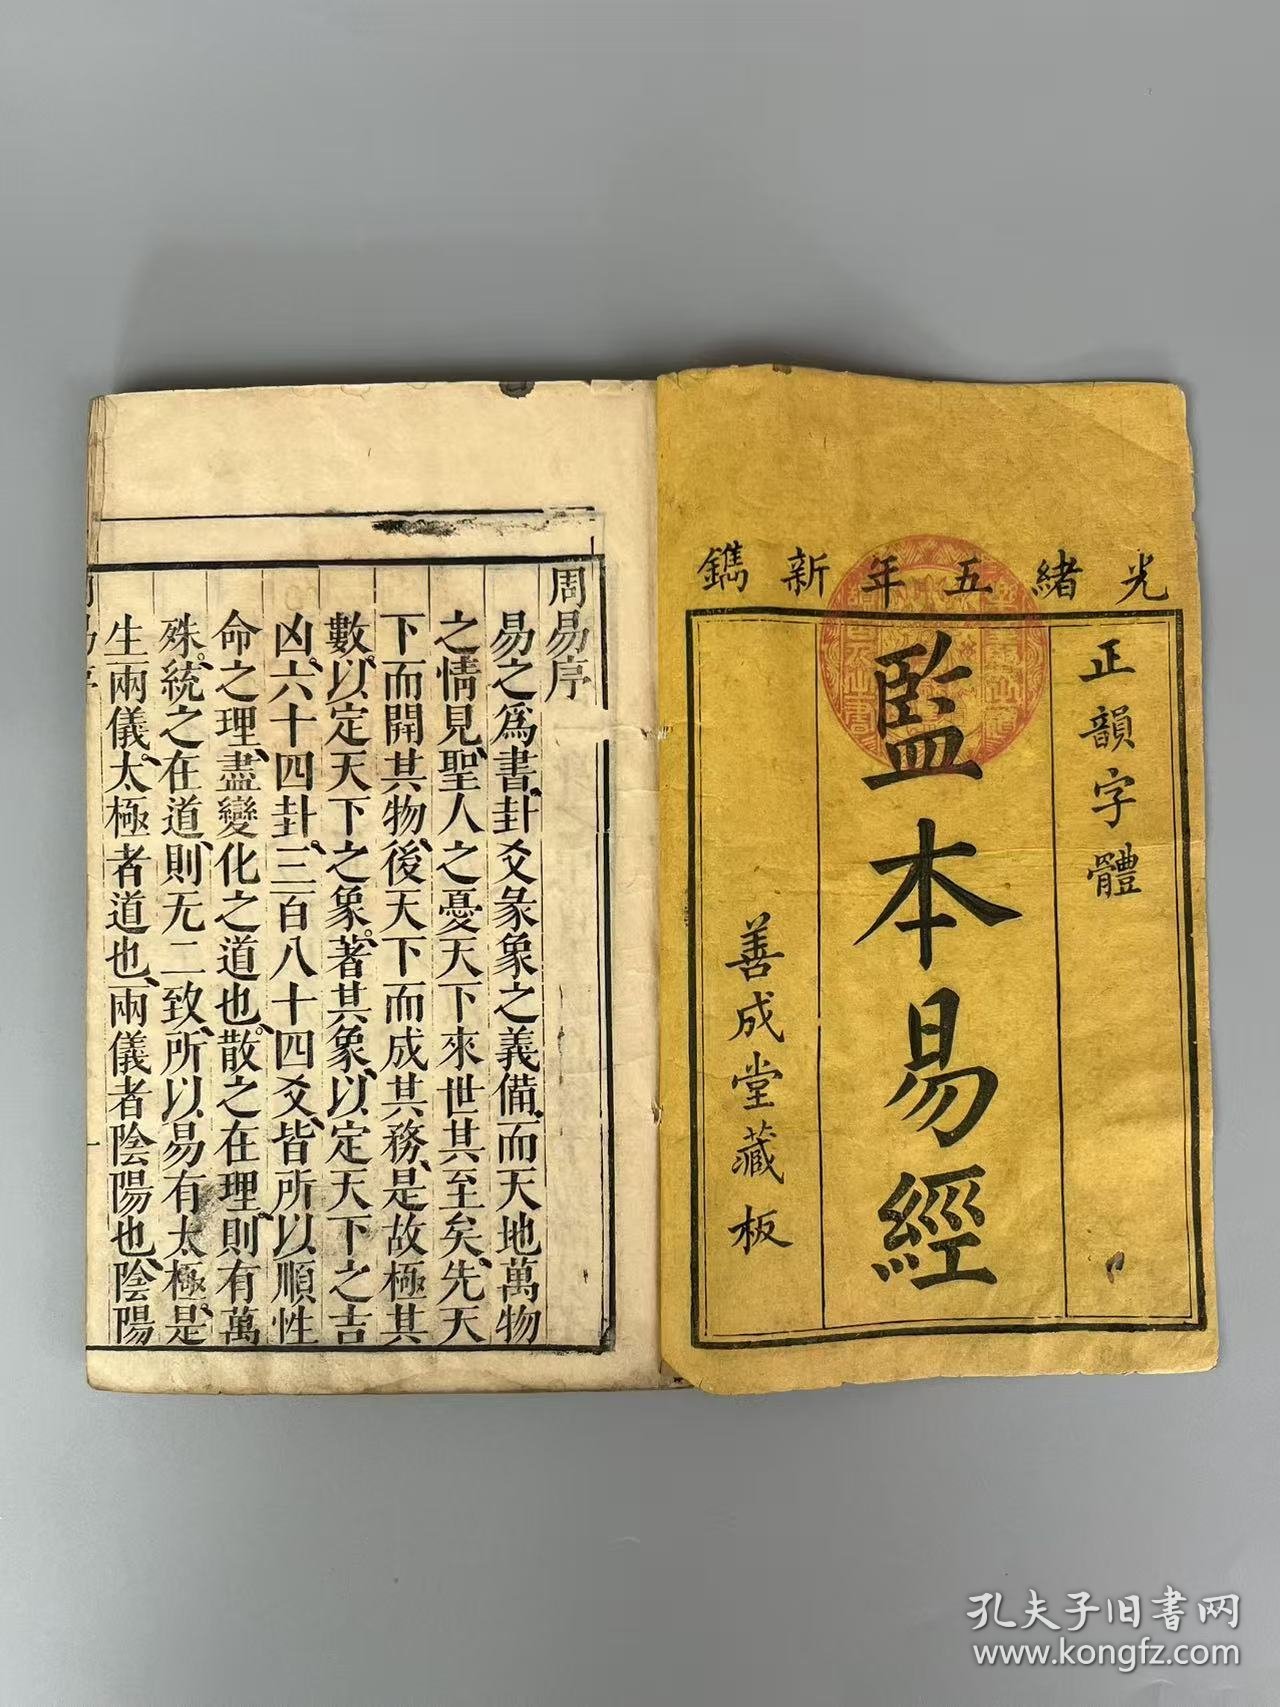 光緒五年新鐫
正韻字體
監本易經
善成堂藏板
周易序
易之爲書、卦爻彖象之義備、而天地萬物
之情見、聖人之憂天下來世其至矣、先天
下而開其物、後天下而成其務、是故極其
數、以定天下之象。著其象、以定天下之吉
凶、六十四卦、三百八十四爻、皆所以順性
命之理、盡變化之道也。散之在理、則有萬
殊。統之在道、則无二致、所以易有太極是
生兩儀。太極者道也、兩儀者陰陽也、陰陽
孔夫子旧书网
www.kongfz.com